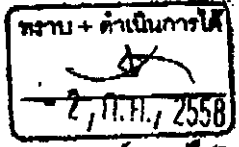 ทราบ + ดำเนินการได้
- 2 , ก.ค. , 2558